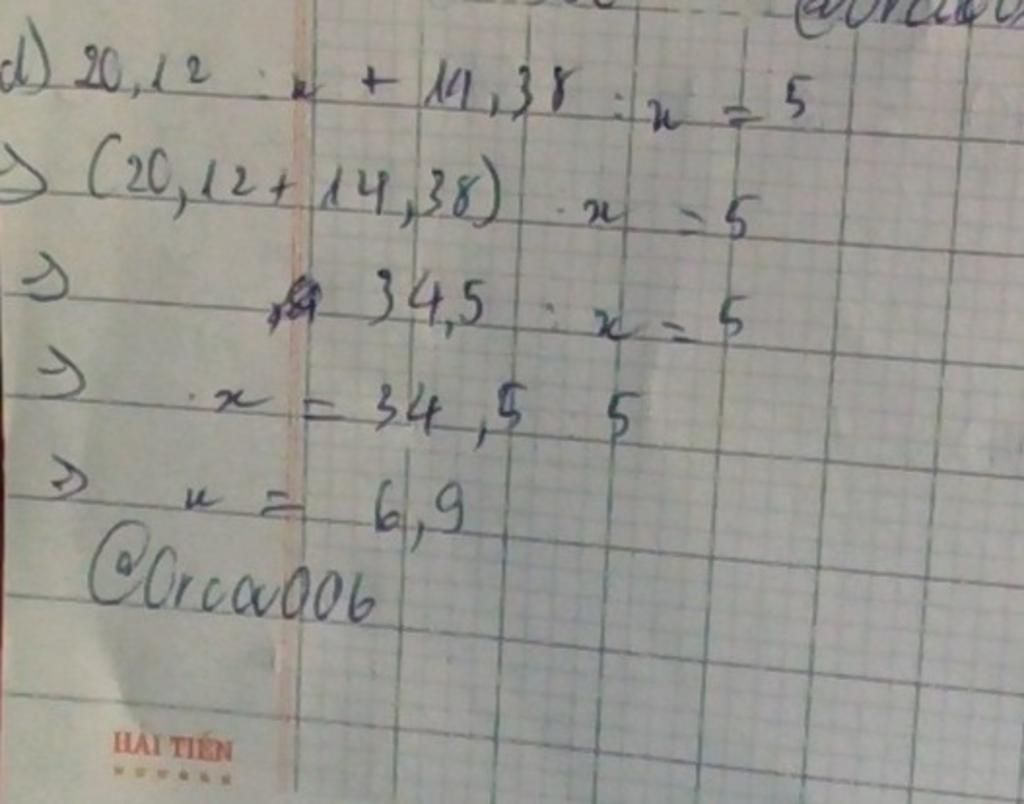 d) 20,12 : x + 14,38 : x = 5
=> (20,12 + 14,38) : x = 5
=> 34,5 : x = 5
=> x = 34,5 : 5
=> x = 6,9
@Orca006
HẢI TIẾN